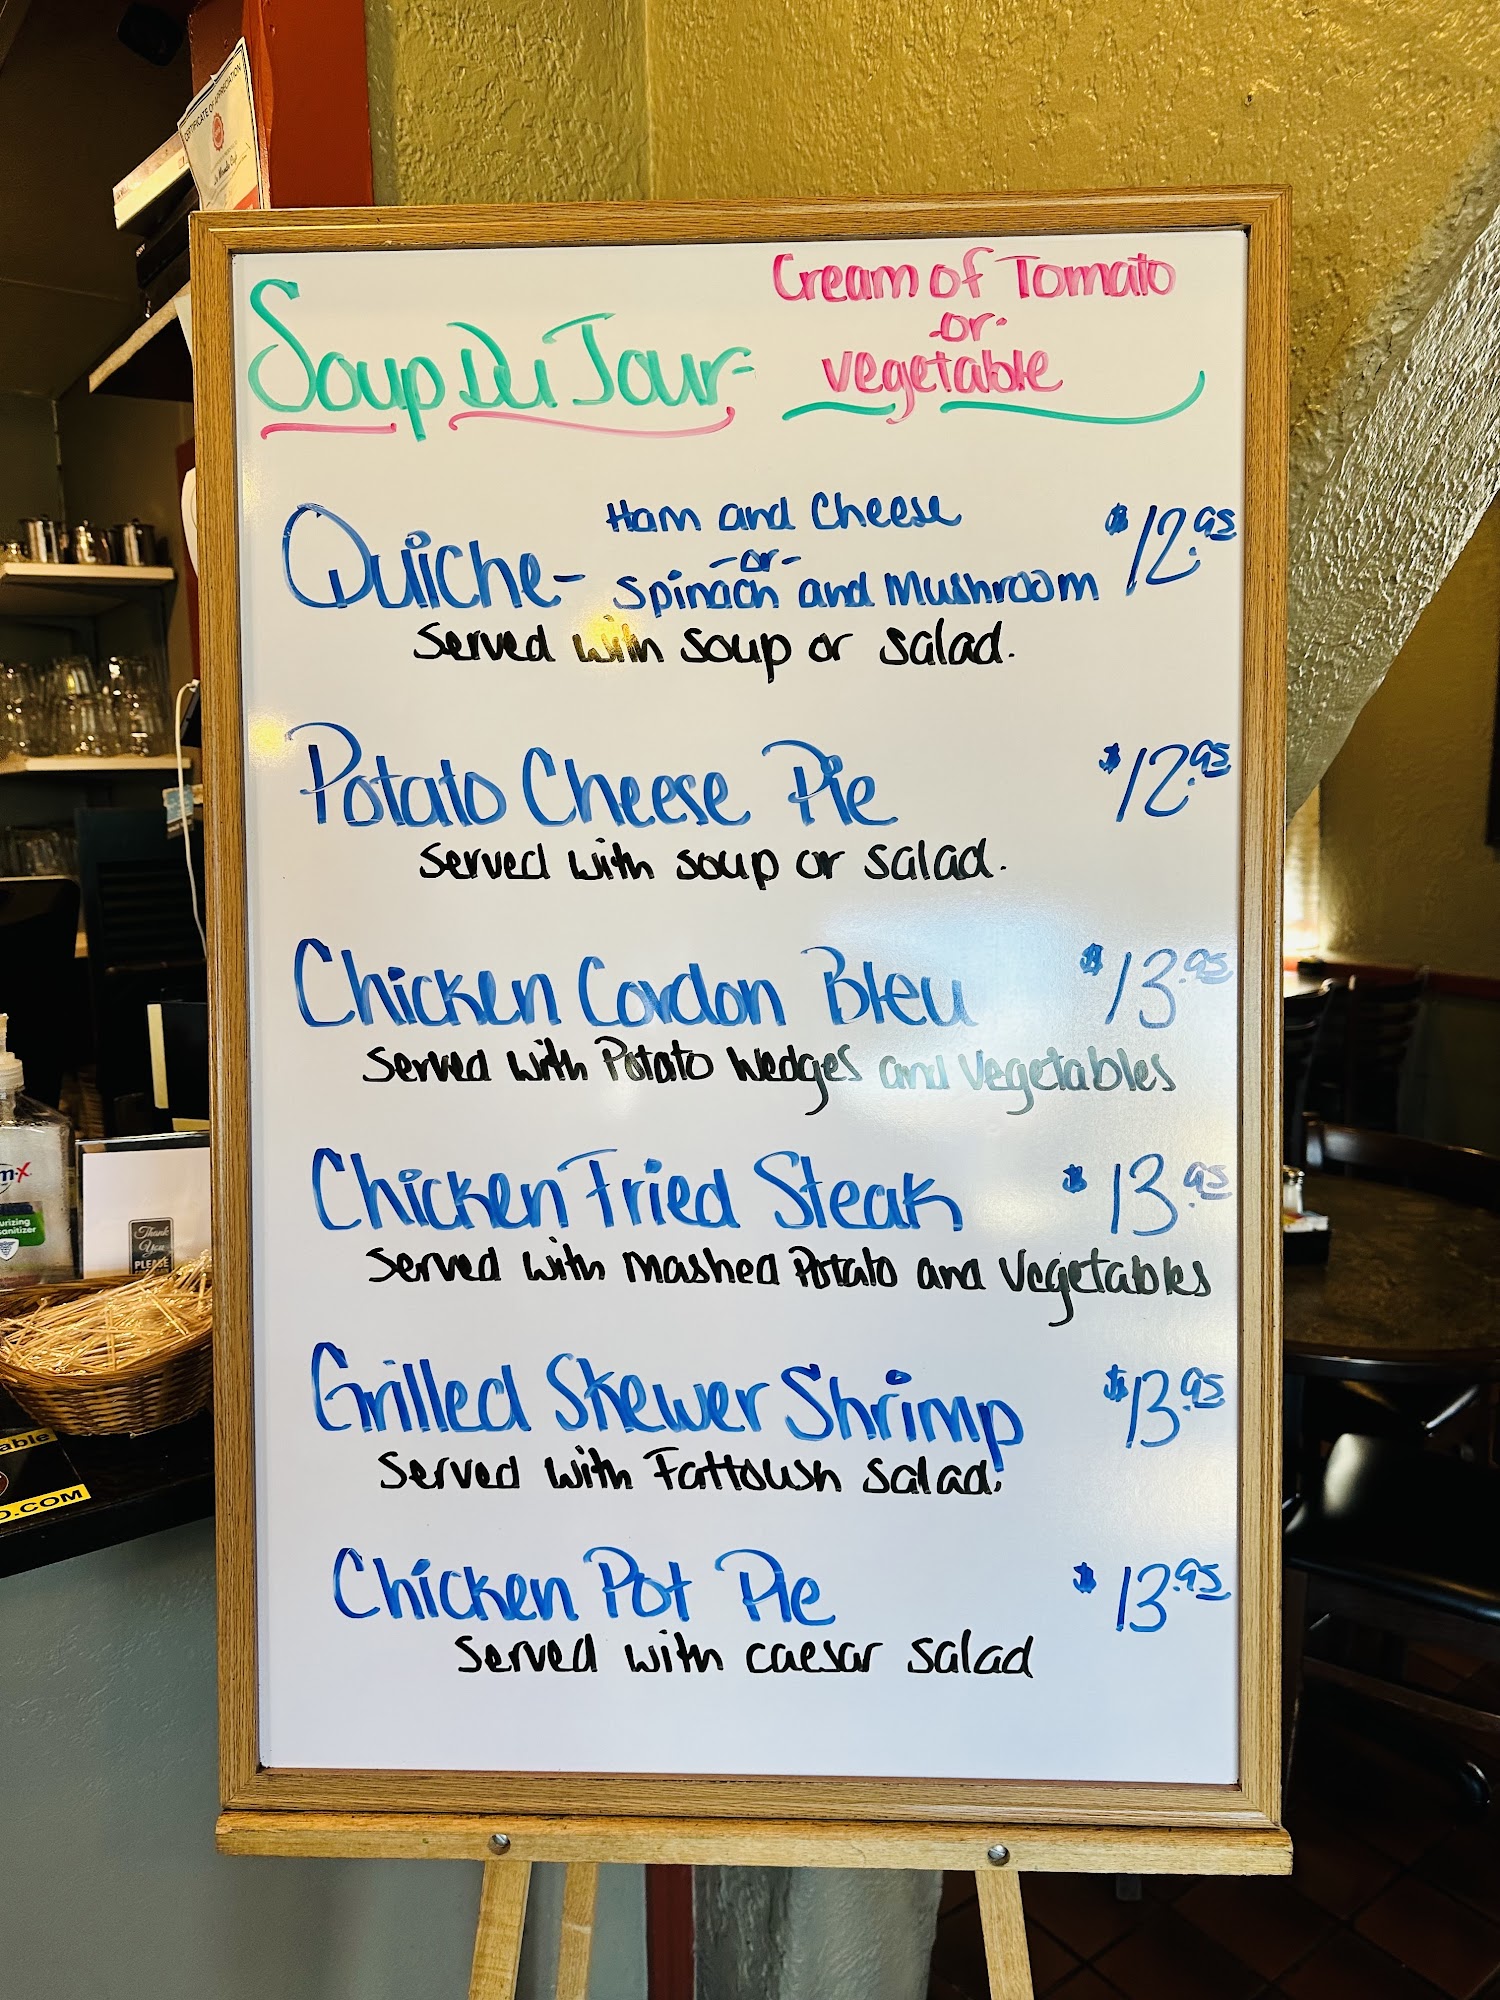 CERTIFICATE OF APPRECIATION
Soup Du Jour-
Cream of Tomato
-or-
Vegetable
Quiche-
Ham and Cheese
-or-
Spinach and Mushroom
$12.95
Served with soup or salad.
Potato Cheese Pie $12.95
Served with soup or salad.
Chicken Cordon Bleu $13.95
Served with Potato Wedges and Vegetables
Chicken Fried Steak $13.95
Served with Mashed Potato and Vegetables
Grilled Skewer Shrimp $13.95
Served with Fattoush Salad.
Chicken Pot Pie $13.95
Served with caesar salad
Thank
You
PLEASE